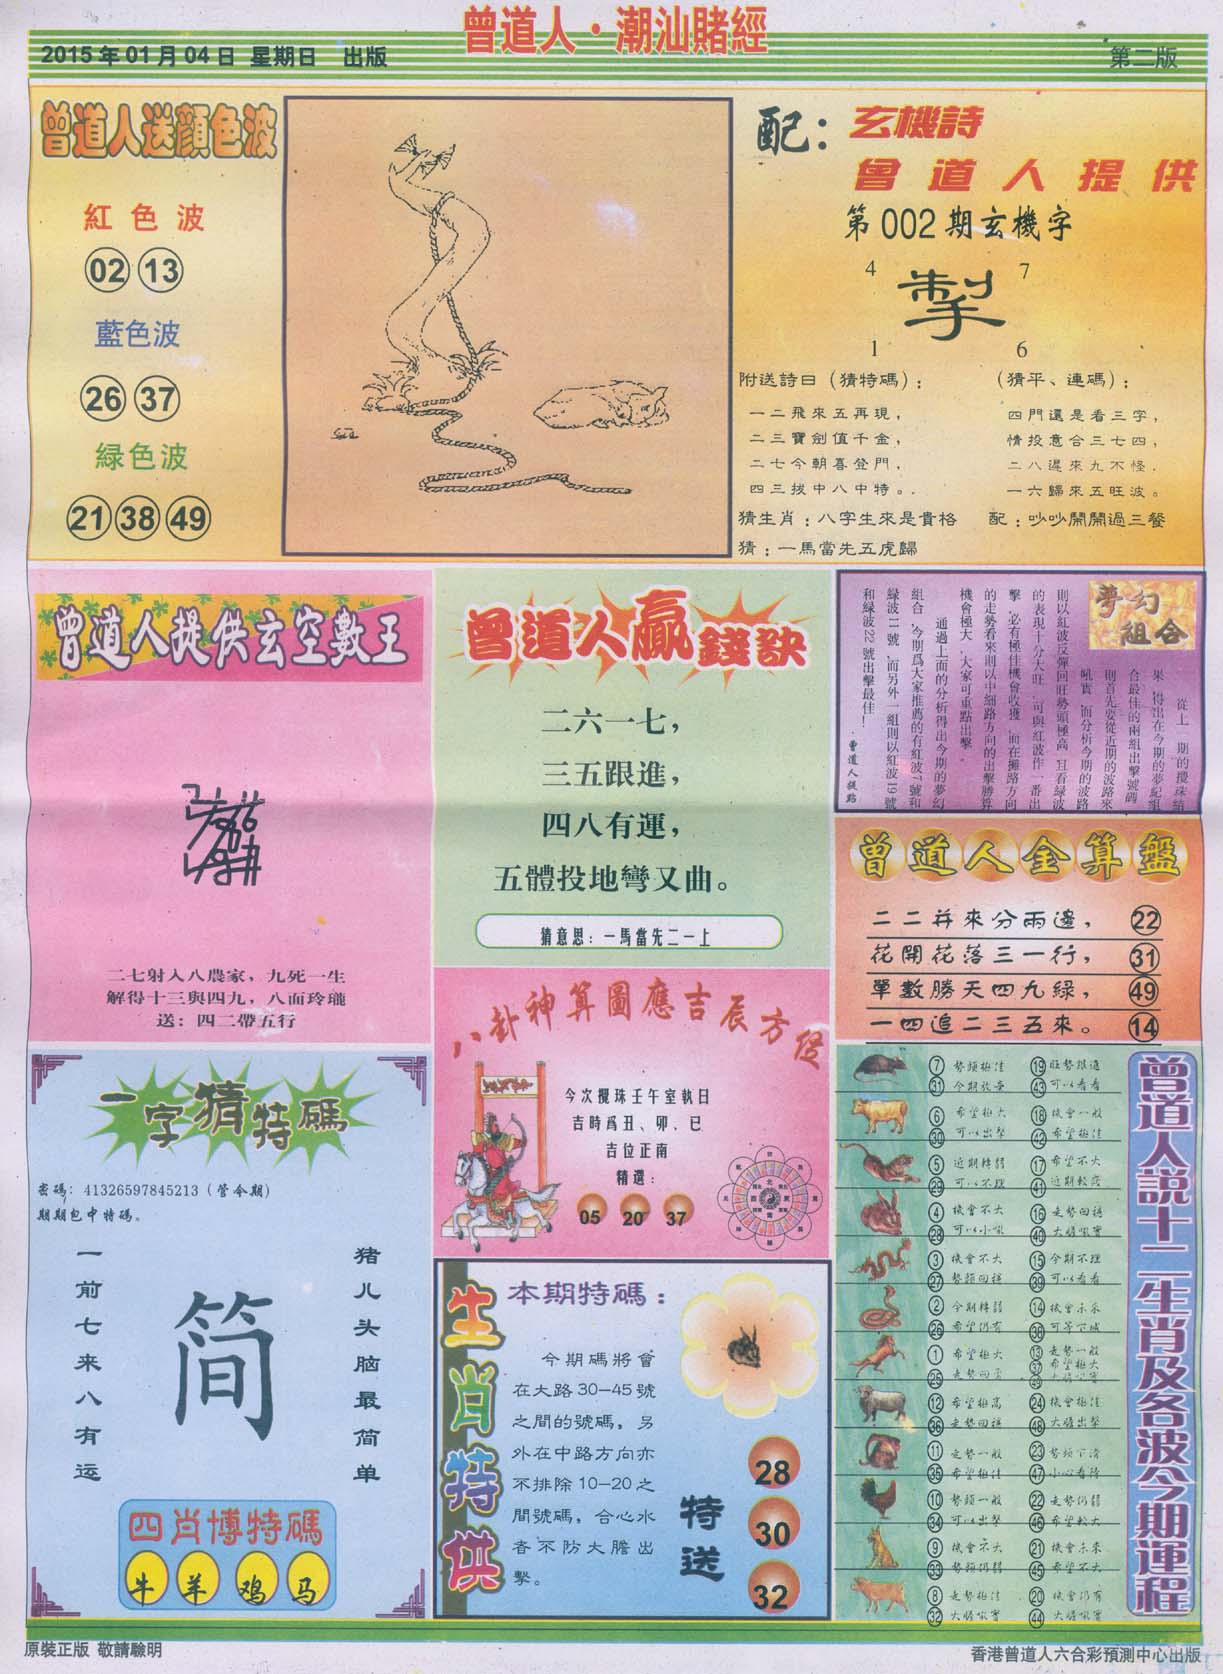 曾道人·潮汕賭經
2015年01月04日 星期日 出版
第二版
曾道人送顏色波
紅色波
02 13
藍色波
26 37
綠色波
21 38 49
配：
玄機詩
曾道人提供
第002期玄機字
4 7
掣
1 6
附送詩曰（猜特碼）：
一二飛來五再現，
二三寶劍值千金，
二七今朝喜登門，
四三拔中八中特。
（猜平、連碼）：
四門還是看三字，
情投意合三七四，
二八遲來九不怪．
一六歸來五旺波。
猜生肖：八字生來是貴格
配：吵吵鬧鬧過三餐
猜：一馬當先五虎歸
曾道人提供玄空數王
二七射入八農家，九死一生
解得十三與四九，八面玲瓏
送：四二帶五行
曾道人贏錢訣
二六一七，
三五跟進，
四八有運，
五體投地彎又曲。
猜意思：一馬當先二一上
夢幻組合
從上一期的攪珠結
果，得出在今期的夢紀組
合最佳的兩組出擊號碼，
則首先要從近期的波路來
吼實，而分析今期的波路
則以紅波反彈回旺勢頭極高，且看綠波
的表現十分大旺，可與紅波作一番出
擊，必有極佳機會收獲，而在攤路方向
的走勢看來則以中細路方向的出擊勝算
機會極大，大家可重點出擊．
通過上面的分析得出今期的夢幻
組合，今期爲大家推薦的有紅波7號和
綠波11號，而另外一組則以紅波19號
和綠波22號出擊最佳！
曾道人提點
曾道人金算盤
二二幷來分兩邊， 22
花開花落三一行， 31
單數勝天四九綠， 49
一四追二三五來。 14
八卦神算圖應吉辰方位
今次攪珠壬午室執日
吉時爲丑、卯、已
吉位正南
精選：
05 20 37
一字猜特碼
密碼：41326597845213（管今期）
期期包中特碼。
一前七来八有运
简
猪儿头脑最简单
四肖博特碼
牛 羊 鸡 马
生肖特供
本期特碼：
今期碼將會
在大路30—45號
之間的號碼，另
外在中路方向亦
不排除10—20之
間號碼，合心水
者不防大膽出
擊。
特送
28
30
32
曾道人說十二生肖及各波今期運程
7 勢頻極佳 19 旺勢跟進
31 今期放棄 43 可以看看
6 希望極大 18 機會一般
30 可以出擊 42 希望極佳
5 近期轉弱 17 希望不大
29 可以不理 41 近期較弱
4 機會不大 16 走勢回穩
28 可以小吼 40 大膽吼實
3 機會不大 15 今期不理
27 勢頭回穩 39 可以看看
2 今期轉弱 14 機會未來
26 希望仍有 38
1 希望極大 13 走勢一般
25 37 希望極大
49
12 希望極高 24 機會極佳
36 走勢回穩 48 大膽出擊
11 走勢一般 23 勢頭下滑
35 希望極佳 47 小心看待
10 勢頭一般 22 走勢仍弱
34 可以出擊 46 希望較大
9 機會不大 21 機會未來
33 勢頭仍弱 45 希望不大
8 走勢極佳 20 機會仍有
32 大膽吼實 44 大膽吼實
原裝正版 敬請驗明
香港曾道人六合彩預測中心出版